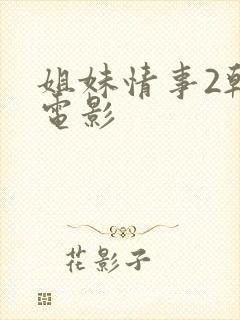 姐妹情事2韩
電影
花影子